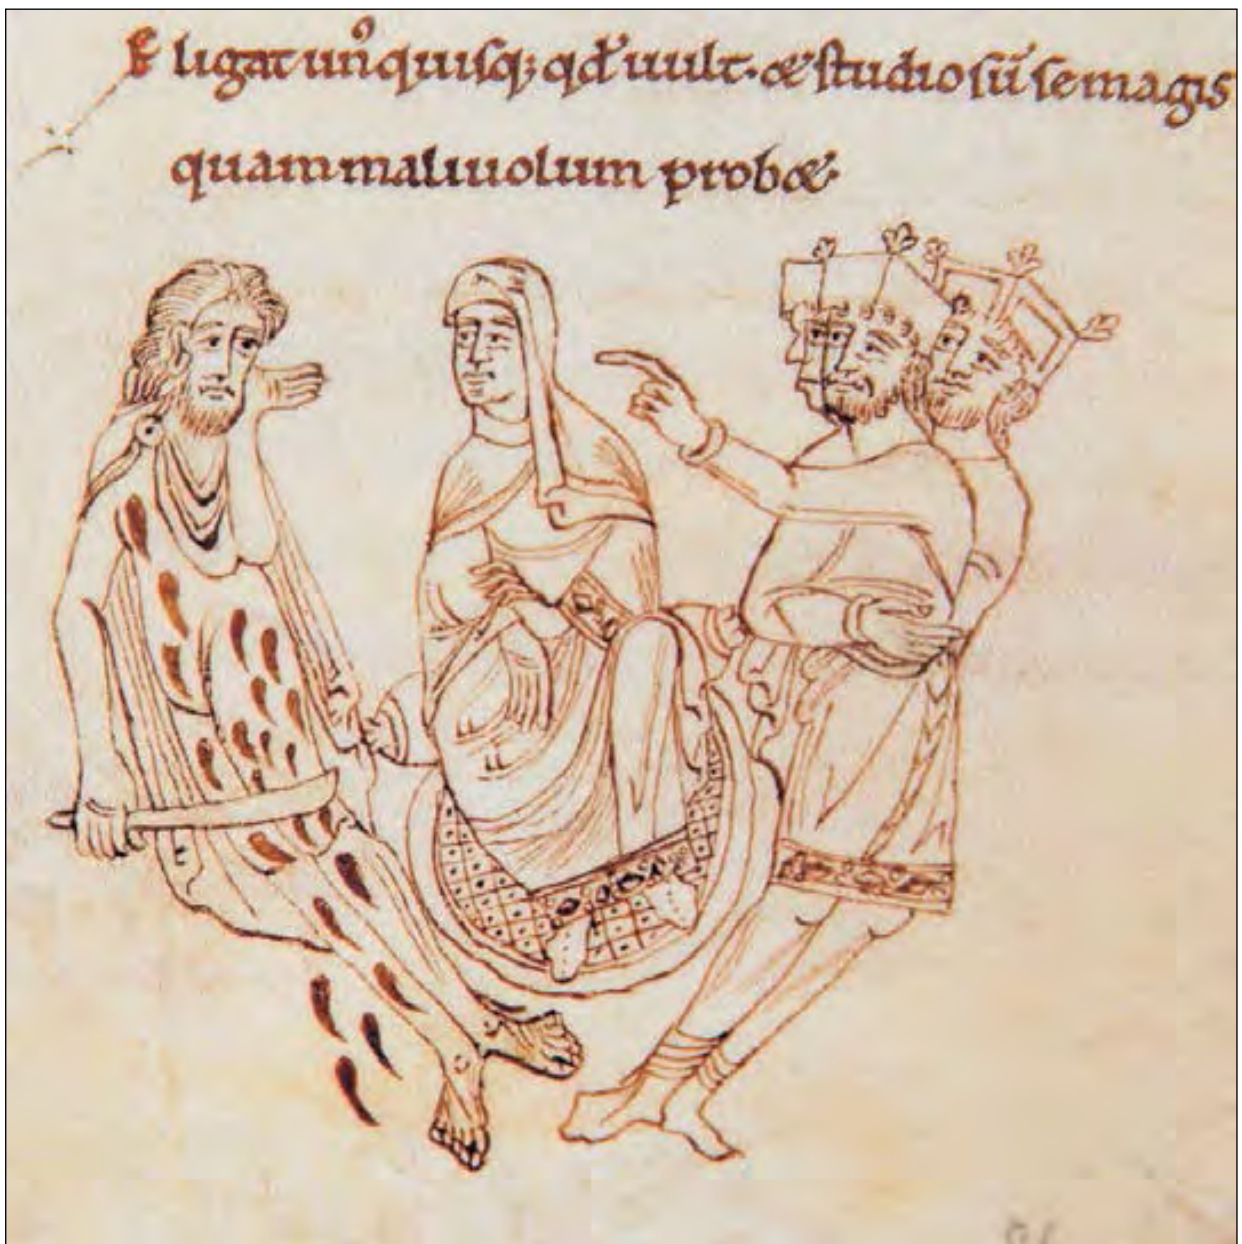 Eligat unꝰquisq; qd̄ uult· & studiosū se magis
quam maliuolum prob&·